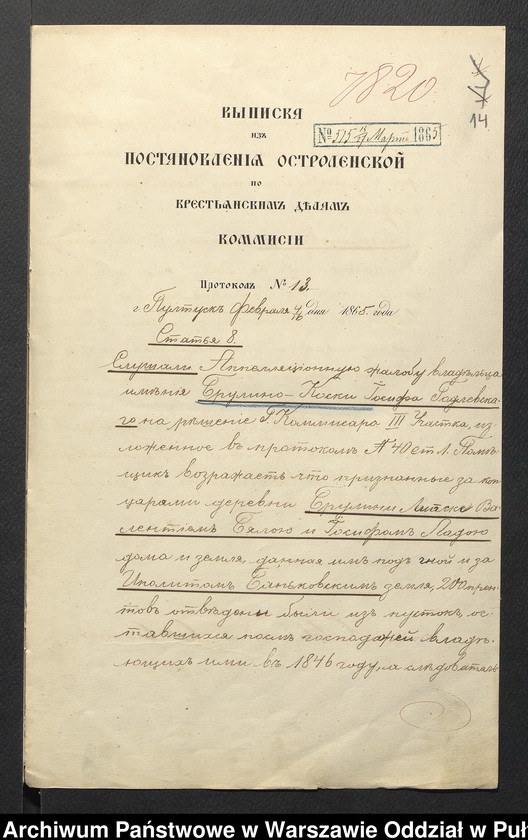 7820.
14
ВЫПИСКА
изъ
№ 515 Март 1865
ПОСТАНОВЛЕНІЯ ОСТРОЛЕНСКОЙ
по
КРЕСТЬЯНСКИМЪ ДѢЛАМЪ
КОММИСІИ
Протоколъ № 13.
г. Пултускъ Февраля 4/16 дня 1865 года
Статья 8.
Слушали Аппелляціонную жалобу владѣльца
имѣнія Грулино-Коски Іосифа Годлевска-
го на рѣшеніе Г. Коммисара III Участка, из
ложенное въ протоколѣ № 40 ст 1. Помѣ-
щикъ возражаетъ что признанные за
царями деревни
лентіемъ и Іосифомъ Ладою
дома и земля, данная имъ подъ гной и за
Иполитомъ земля, 200 прен-
товъ отведены были изъ пустокъ, ос-
тавшихся послѣ господарей владѣ-
ющихъ ими въ 1846 году, а слѣдователь
Archiwum Państwowe w Warszawie Oddział w Puł